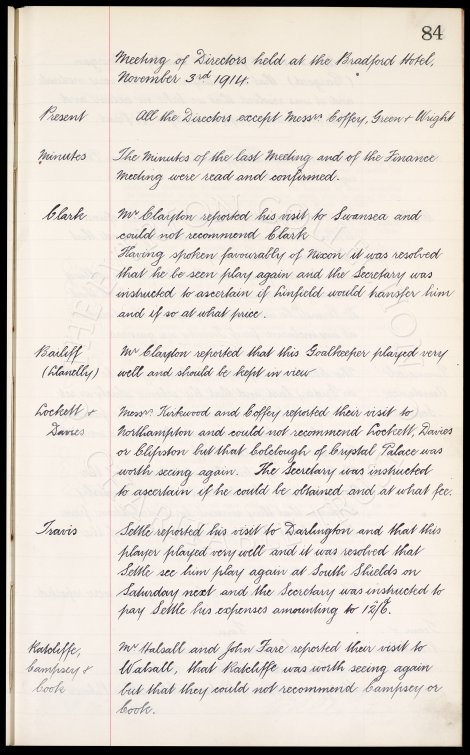 84
Meeting of Directors held at the Bradford Hotel,
November 3rd 1914.
Present All the Directors except Messrs. Coffey, Green & Wright
Minutes The Minutes of the last Meeting and of the Finance
Meeting were read and confirmed.
Clark Mr Clayton reported his visit to Swansea and
could not recommend Clark
Having spoken favourably of Nixon it was resolved
that he be seen play again and the Secretary was
instructed to ascertain if Linfield would transfer him
and if so at what price.
Bailiff Mr Clayton reported that this Goalkeeper played very
(Llanelly) well and should be kept in view
Lockett & Messrs. Kirkwood and Coffey reported their visit to
Davies Northampton and could not recommend Lockett, Davies
or Clipston but that Colclough of Crystal Palace was
worth seeing again. The Secretary was instructed
to ascertain if he could be obtained and at what fee.
Travis Settle reported his visit to Darlington and that this
player played very well and it was resolved that
Settle see him play again at South Shields on
Saturday next and the Secretary was instructed to
pay Settle his expenses amounting to 12/6.
Ratcliffe, Mr Halsall and John Fare reported their visit to
Campsey & Walsall, that Ratcliffe was worth seeing again
Cook but that they could not recommend Campsey or
Cook.